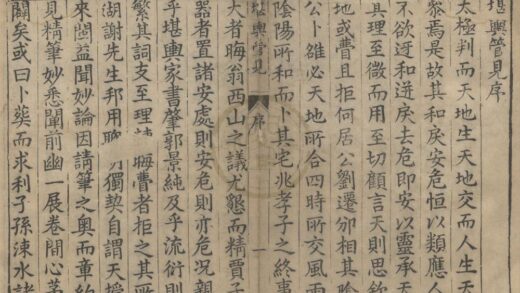 堪輿管見序
太極判而天地生天地交而人生天
黎焉是故其和戾安危恒以類應人
不欲迓和迸戾去危即安以靈承天
具理至微而用至切顧言天則思欽
地或曹且拒何居公劉遷邠相其陰
公卜雒必天地所合四時所交風雨
陰陽所和而卜其宅兆孝子之終事
堪輿管見 序 一
大者晦翁西山之議尤懇而精賈子
器者置諸安處則安危則亦危況親
乎堪輿家書肇郭景純及乎流衍則
繁其詞支至理 晦費者拒之其所
湖謝先生邦用 獨契自謂天授
來閩益聞妙論因請筆之奧而童約
見精筆妙悉闡前幽一展卷間心茅
闕矣或曰卜葬而求利了孫涑水諸